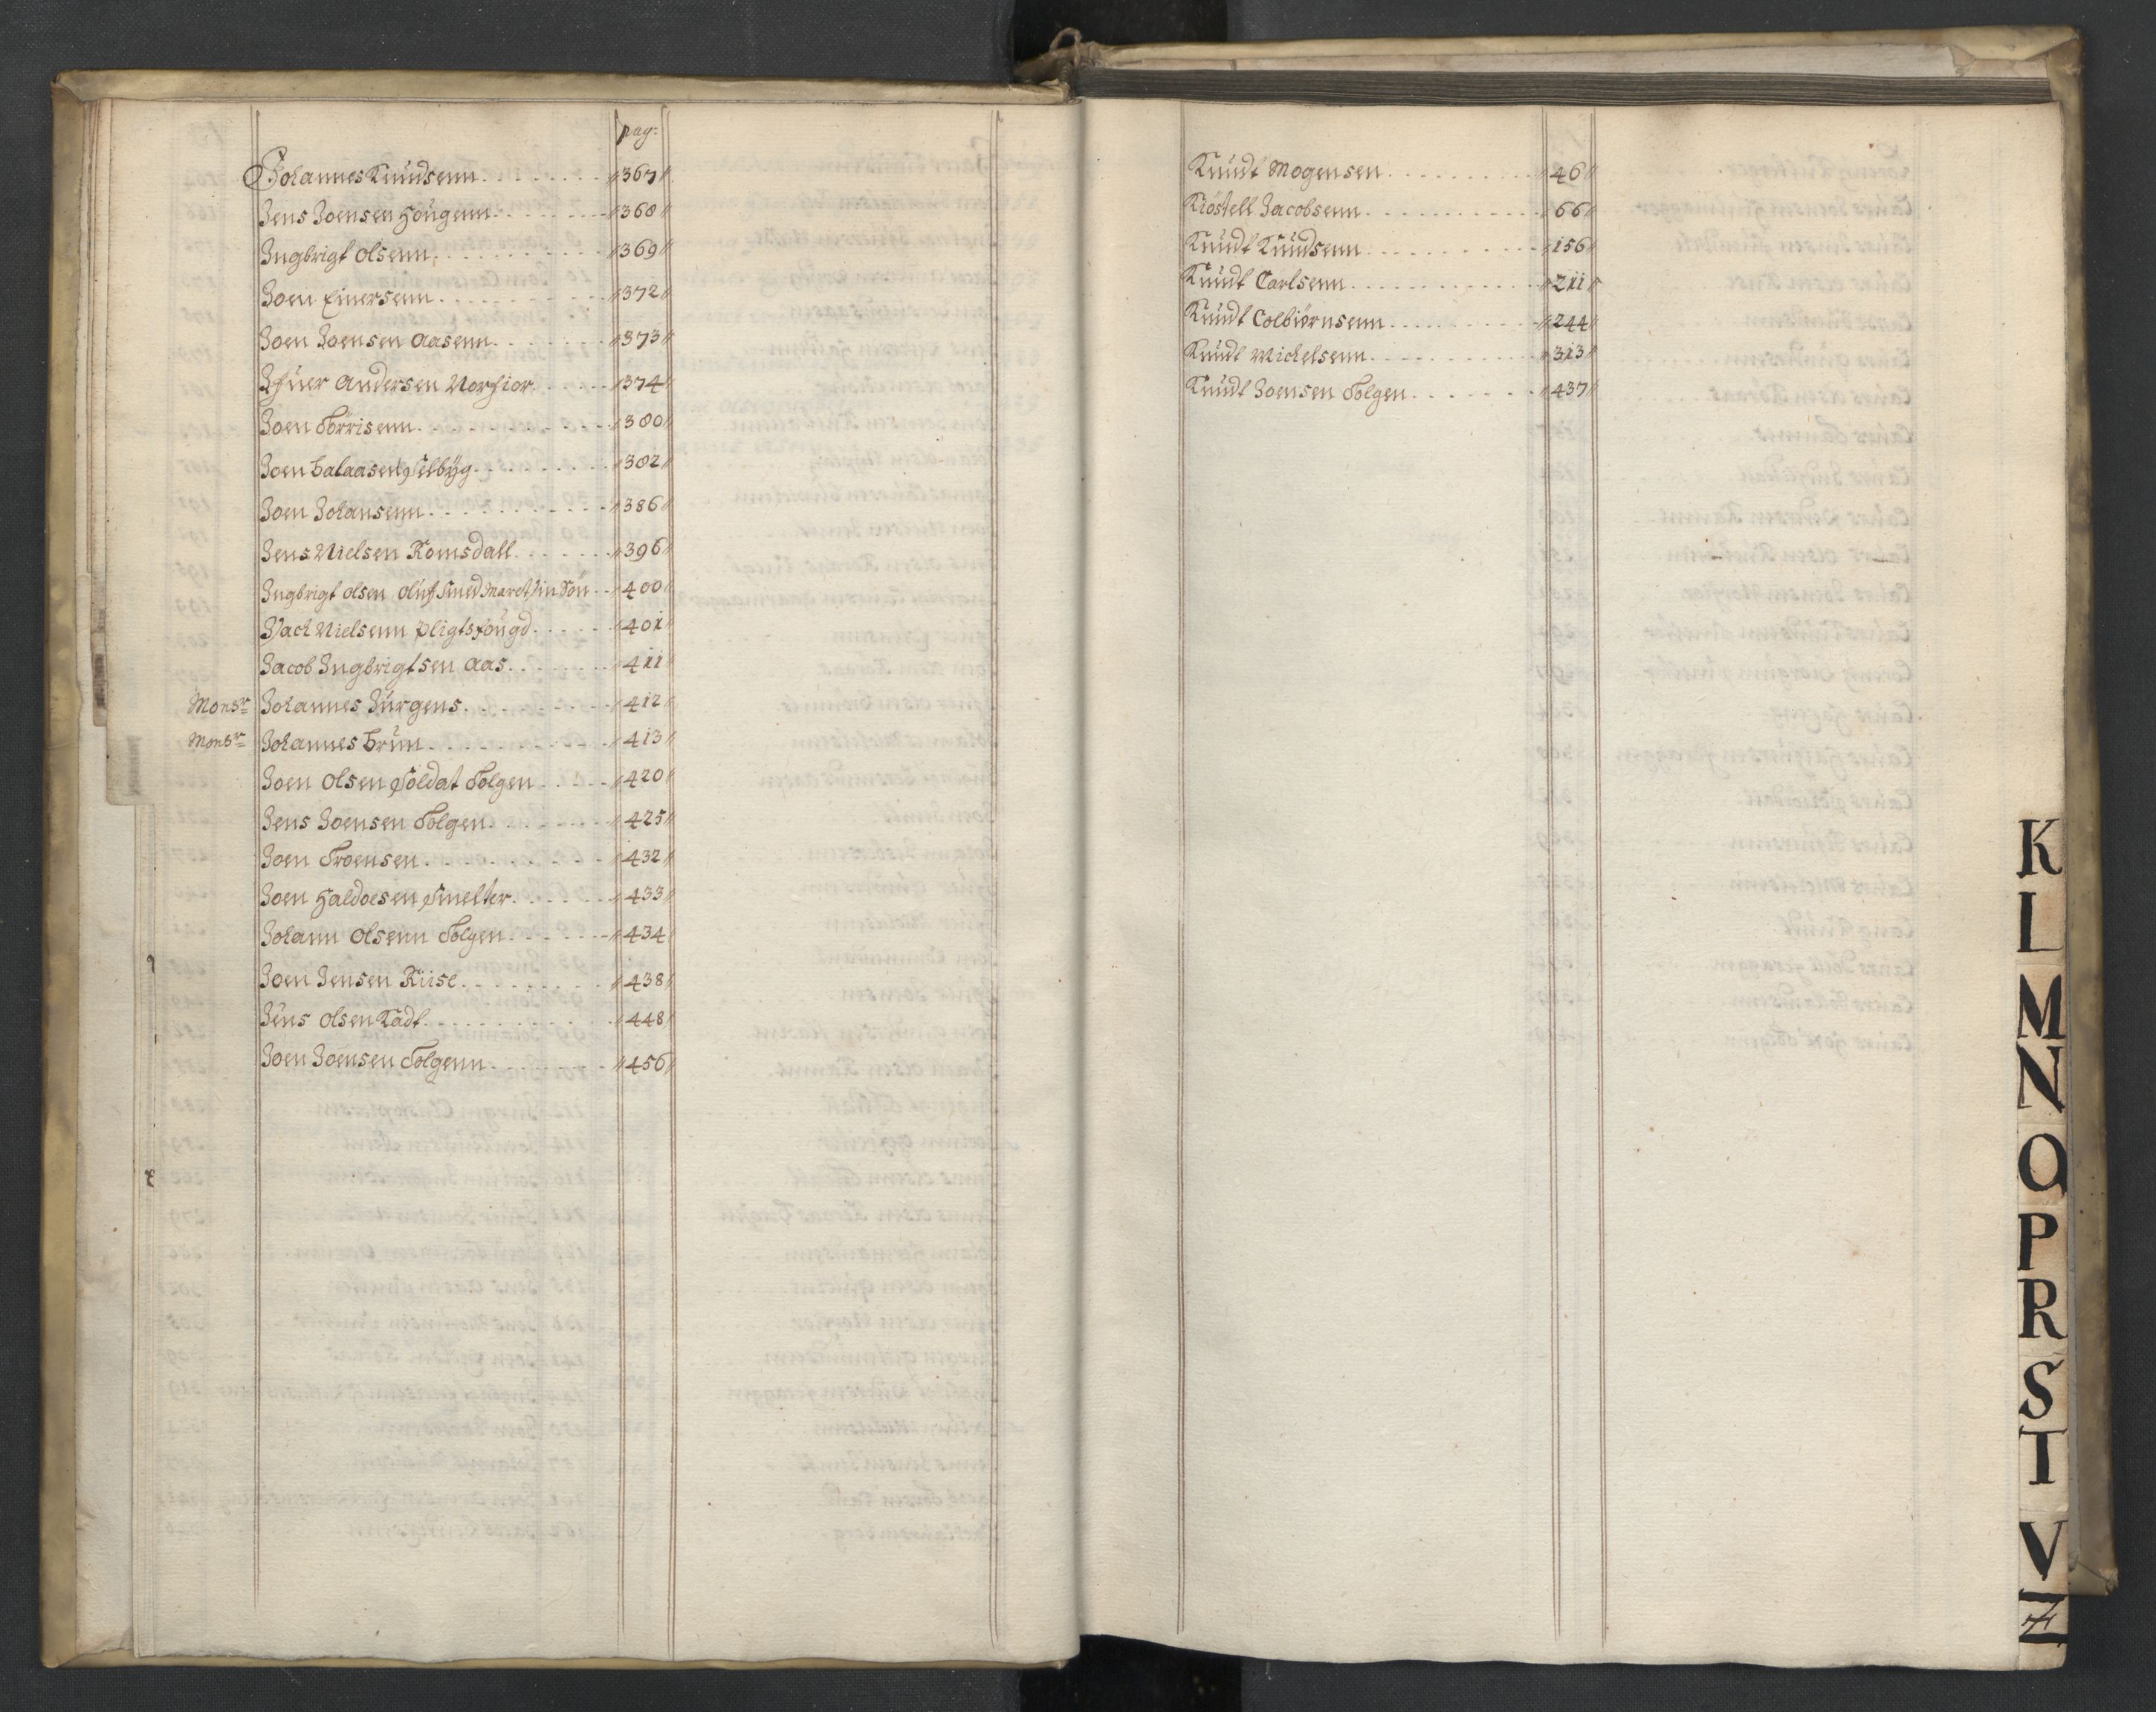 pag:
Johannes Knudsenn 367
Jens Joensen Hougenn 368
Ingbrigt Olsenn 369
Joen Einersenn 372
Joen Joensen Aasenn 373
Ifuer Andersen Norfior 374
Joen Törrisenn 380
Joen Balaasen Selbÿg 382
Joen Johansenn 386
Jens Nielsen Romsdall 396
Ingbrigt Olsen Oluf Smed Maret sin Sön 400
Isach Nielsenn Pligtsfougd 401
Jacob Ingbrigtsen Aas 411
Monsr Johannes Jürgens 412
Monsr Johannes Brün 413
Joen Olsen Soldat Tolgen 420
Jens Joensen Tolgen 425
Joen Troensen 432
Joen Haldoesen Smelter 433
Johann Olsenn Tolgen 434
Joen Jensen Riise 438
Jens Olsen Kadt 448
Joen Joensen Tolgenn 456
Knudt Mogensen 46
Kiöstell Jacobsenn 66
Knudt Knudsenn 156
Knudt Carlsenn 211
Knudt Colbiörnsenn 244
Knudt Michelsenn 313
Knudt Joensen Tolgen 437
K
L
M
N
O
P
R
S
T
V
Z